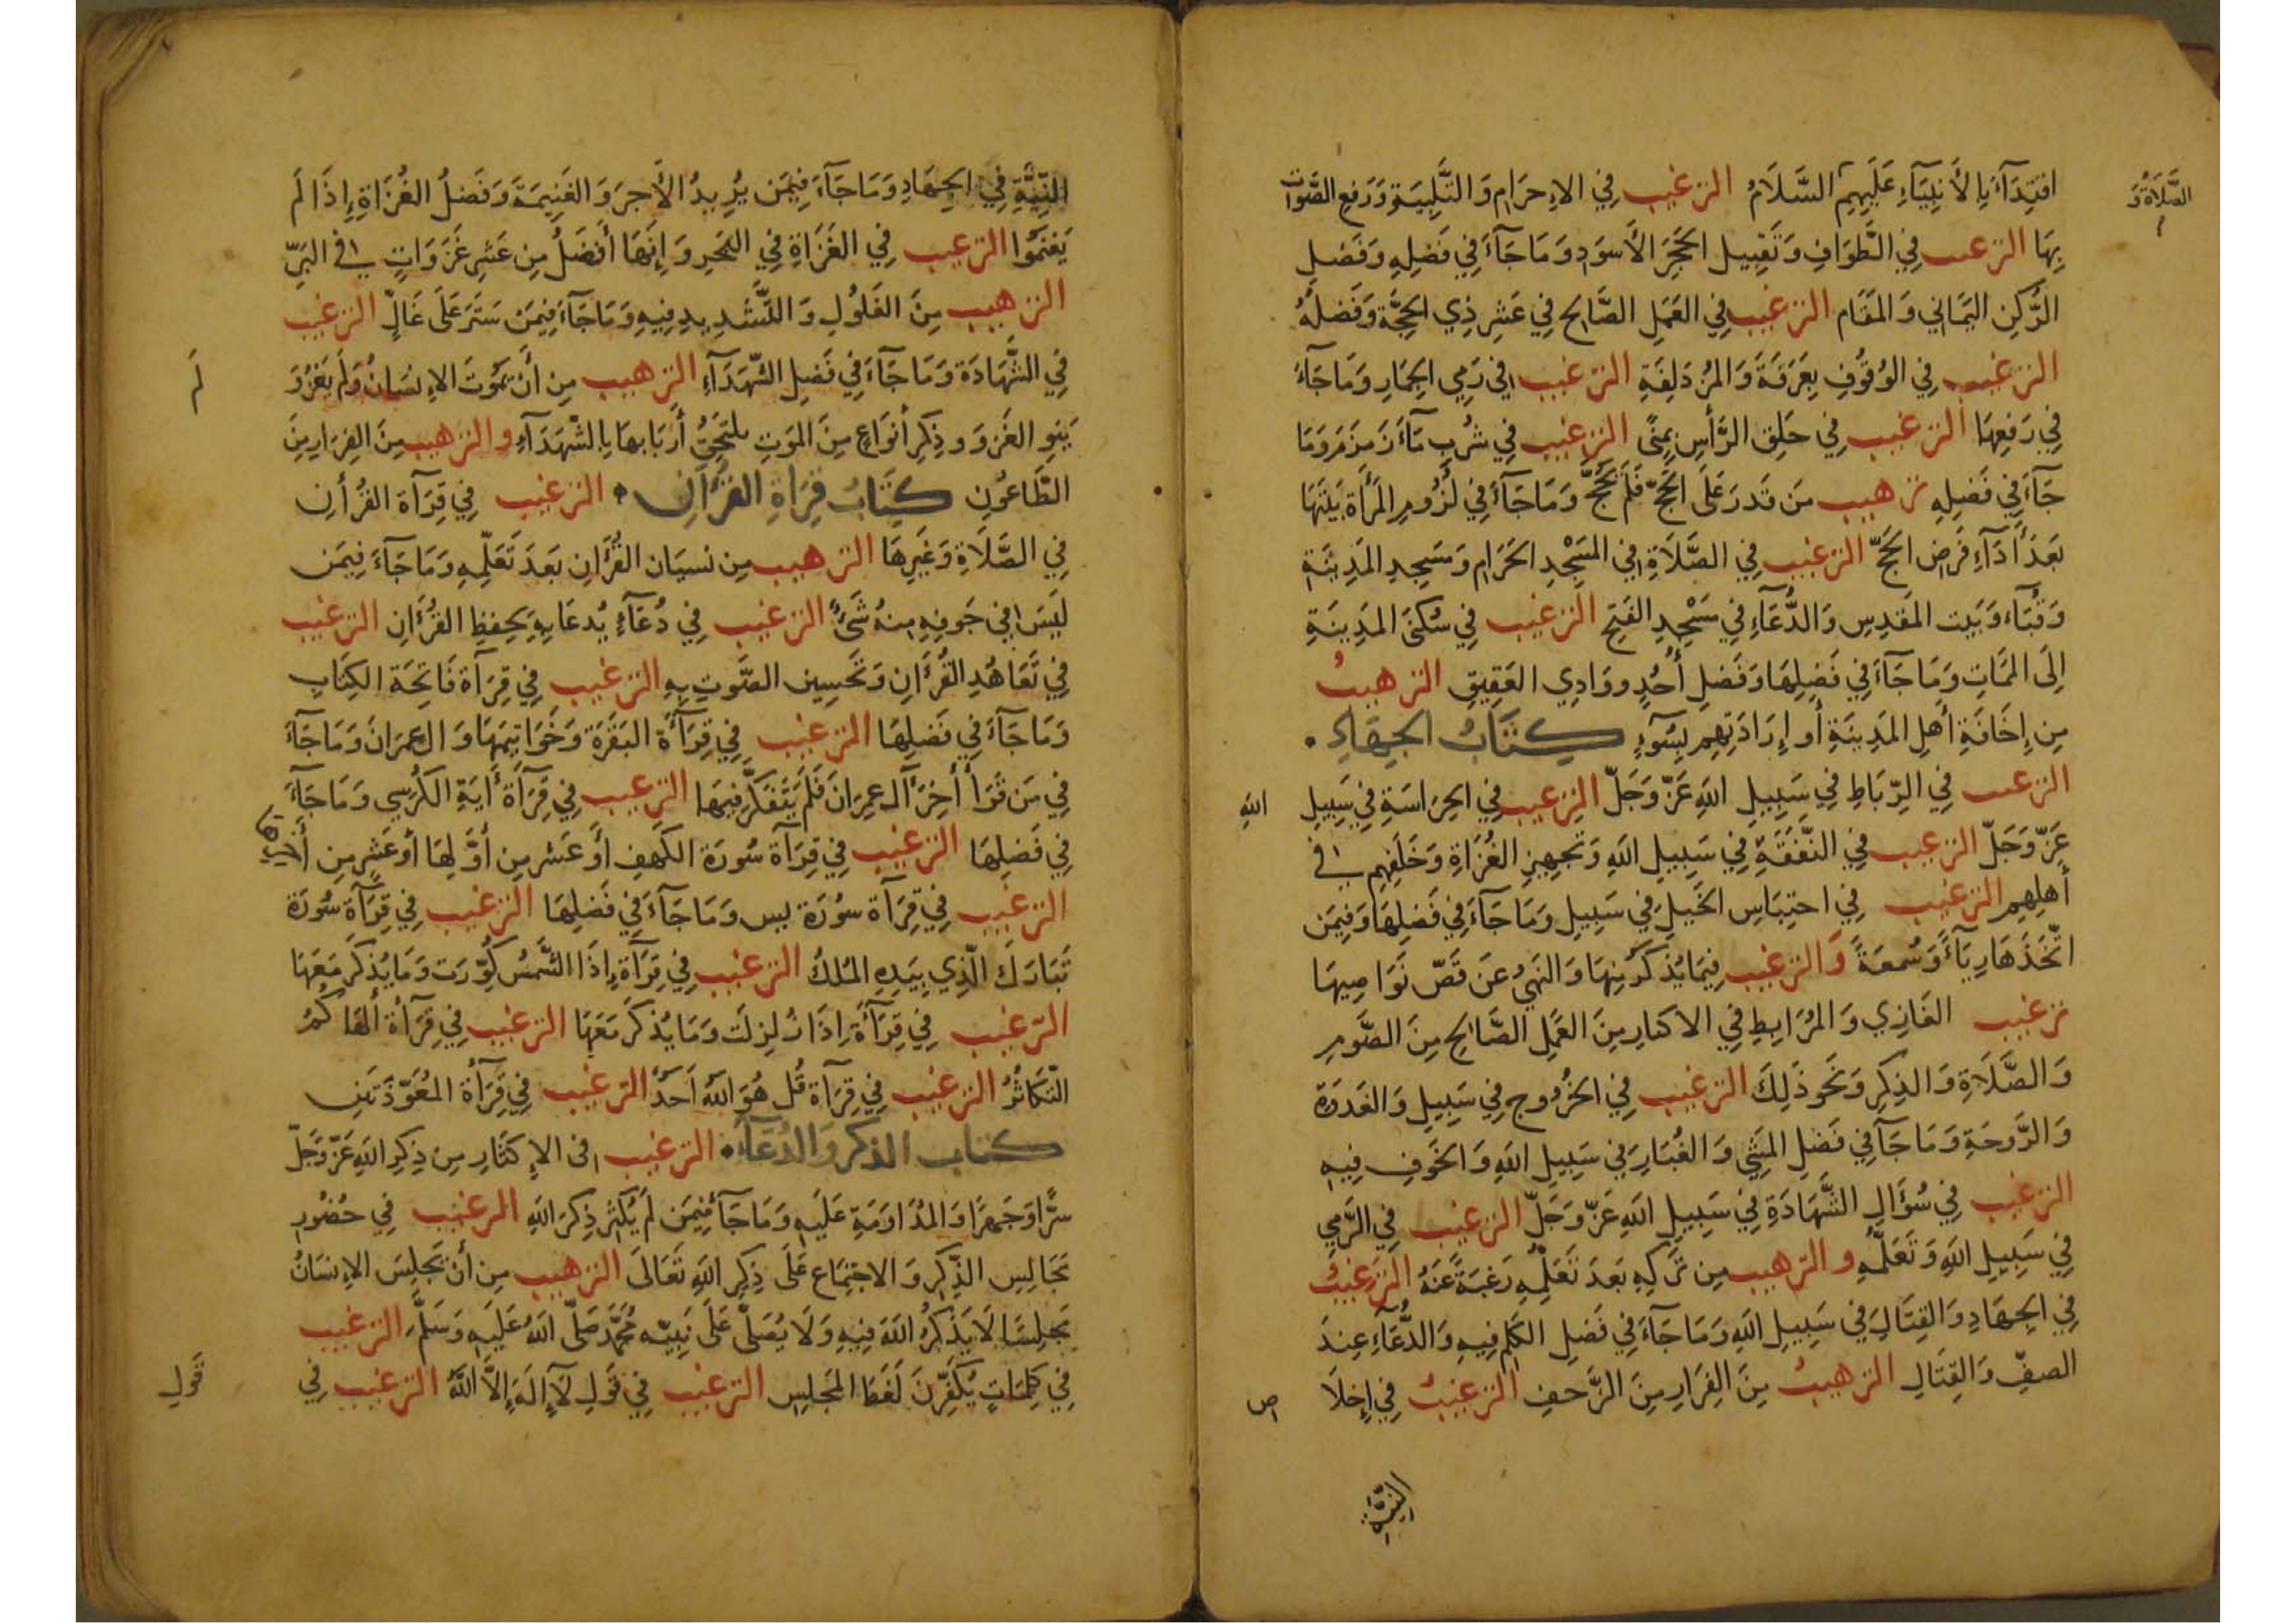 اقتِدَآءً بِالأَنبِيَآءِ عَلَيهِمِ السَّلَامُ الترغيب فِي الإِحرَامِ وَالتَّلبِيَةِ وَرَفعِ الصَّوتِ
الصَّلَاةُ وَ
بِهَا الترغيب فِي الطَّوَافِ وَتَقبِيلِ الحَجَرِ الأَسوَدِ وَمَا جَآءَ فِي فَضلِهِ وَفَضلِ
الرُّكنِ اليَمَانِي وَالمَقَامِ الترغيب فِي العَمَلِ الصَّالِحِ فِي عَشرِ ذِي الحِجَّةِ وَفَضلُهُ
الترغيب فِي الوُقُوفِ بِعَرَفَةَ وَالمُزدَلِفَةِ الترغيب فِي رَميِ الجِمَارِ وَمَا جَآءَ
فِي رَفعِهَا الترغيب فِي حَلقِ الرَّأسِ بِمِنًى الترغيب فِي شُربِ مَآءِ زَمزَمَ وَمَا
جَآءَ فِي فَضلِهِ ترهيب مَن قَدَرَ عَلَى الحَجِّ فَلَم يَحُجَّ وَمَا جَآءَ فِي لُزُومِ المَرأَةِ بَيتَهَا
بَعدَ أَدَآءِ فَرضِ الحَجِّ الترغيب فِي الصَّلَاةِ فِي المَسجِدِ الحَرَامِ وَمَسجِدِ المَدِينَةِ
وَقُبَآءَ وَبَيتِ المَقدِسِ وَالدُّعَآءِ فِي مَسجِدِ الفَتحِ الترغيب فِي سُكنَى المَدِينَةِ
إِلَى المَمَاتِ وَمَا جَآءَ فِي فَضلِهَا وَفَضلِ أُحُدٍ وَوَادِي العَقِيقِ الترهيبُ
مِن إِخَافَةِ أَهلِ المَدِينَةِ أَو إِرَادَتِهِم بِسُوٓءٍ كِتَابُ الجِهَادِ
الترغيب فِي الرِّبَاطِ فِي سَبِيلِ اللهِ عَزَّ وَجَلَّ الترغيب فِي الحِرَاسَةِ فِي سَبِيلِ اللهِ
عَزَّ وَجَلَّ الترغيب فِي النَّفَقَةِ فِي سَبِيلِ اللهِ وَتَجهِيزِ الغُزَاةِ وَخَلَفِهِم فِي
أَهلِهِم الترغيب فِي احتِبَاسِ الخَيلِ فِي سَبِيلِ وَمَا جَآءَ فِي فَضلِهَا وَفِيمَن
اتَّخَذَهَا رِيَآءً وَسُمعَةً وَالترغيب فِيمَا يُذكَرُ مِنهَا وَالنَّهيُ عَن قَصِّ نَوَاصِيهَا
ترغيب الغَازِي وَالمُرَابِطِ فِي الاكثارِ مِنَ العَمَلِ الصَّالِحِ مِنَ الصَّومِ
وَالصَّلَاةِ وَالذِّكرِ وَنَحوِ ذَلِكَ الترغيب فِي الخُرُوجِ فِي سَبِيلِ وَالغَدوَةِ
وَالرَّوحَةِ وَمَا جَآءَ فِي فَضلِ المَشيِ وَالغُبَارِ فِي سَبِيلِ اللهِ وَالخَوفِ فِيهِ
الترغيب فِي سُؤَالِ الشَّهَادَةِ فِي سَبِيلِ اللهِ عَزَّ وَجَلَّ الترغيب فِي الرَّميِ
فِي سَبِيلِ اللهِ وَتَعَلُّمِهِ والترهيب مِن تَركِهِ بَعدَ تَعَلُّمِهِ رَغبَةً عَنهُ الترغيبُ
فِي الجِهَادِ وَالقِتَالِ فِي سَبِيلِ اللهِ وَمَا جَآءَ فِي فَضلِ الكَلمِ فِيهِ وَالدُّعَآءِ عِندَ
الصفِّ وَالقِتَالِ الترهيبُ مِنَ الفِرَارِ مِنَ الزَّحفِ الترغيبُ فِي إِخلَا ص
النِّيَّةِ
النِّيَّةِ فِي الجِهَادِ وَمَا جَآءَ فِيمَن يُرِيدُ الأَجرَ وَالغَنِيمَةَ وَفَضلُ الغُزَاةِ إِذَا لَم
يَغنَمُوا الترغيب فِي الغَزَاةِ فِي البَحرِ وَإِنَّهَا أَفضَلُ مِن عَشرِ غَزَوَاتٍ فِي البَرِّ
الترهيب مِنَ الغُلُولِ وَالتَّشدِيدِ فِيهِ وَمَا جَآءَ فِيمَن سَتَرَ عَلَى غَالٍّ الترغيب
فِي الشَّهَادَةِ وَمَا جَآءَ فِي فَضلِ الشُّهَدَآءِ الترهيب مِن أَن يَمُوتَ الإِنسَانُ وَلَم يَغزُ وَ لَم
يَنوِ الغَزوَ وذِكرِ أَنوَاعٍ مِنَ المَوتِ يلتَحِقُ أَربَابهَا بِالشُّهَدَآءِ والترهيب مِنَ الفِرَارِ مِنَ
الطَّاعُونِ كِتَابُ قِرَاةِ القُرآنِ الترغيب فِي قِرَآةِ القُرأنِ
فِي الصَّلَاةِ وَغَيرِهَا الترهيب مِن نسيَانِ القُرأنِ بَعدَ تَعَلُّمِهِ وَمَا جَآءَ فِيمَن
لَيسَ فِي جَوفِهِ مِنهُ شَئٌ الترغيب فِي دُعَآءٍ يُدعَا بِهِ بِحِفظِ القُرأنِ الترغيب
فِي تَعَاهُدِ القُرأنِ وَتَحسِينِ الصَّوتِ بِهِ الترغيب فِي قِرَآةِ فَاتِحَةِ الكِتَابِ
وَمَا جَآءَ فِي فَضلِهَا الترغيب فِي قِرَآةِ البَقَرَةِ وَخَوَاتِيمِهَا وَال عِمرَانَ وَمَا جَآءَ
فِي مَن قَرَأَ أَخِرَ آل عِمرَانَ فَلَم يَتَفَكَّر فِيهَا الترغيب فِي قِرَآةِ أَيَةِ الكُرسِي وَمَا جَآءَ
فِي فَضلِهَا الترغيب فِي قِرَآةِ سُورَةِ الكَهفِ أَو عَشرٍ مِن أَوَّلِهَا أَو عَشرٍ مِن أَخِرِهَا
الترغيب فِي قِرَآةِ سُورَةِ يس وَمَا جَآءَ فِي فَضلِهَا الترغيب فِي قِرَآةِ سُورَةِ
تَبَارَكَ الَّذِي بِيَدِهِ المُلكُ الترغيب فِي قِرَآةِ إِذَا الشَّمسُ كُوِّرَت وَمَا يُذكَر مَعَهَا
الترغيب فِي قِرَآةِ إِذَا زُلزِلَت وَمَا يُذكَر مَعَهَا الترغيب فِي قِرَآةِ أَلهَاكُمُ
التَّكَاثُرُ الترغيب فِي قِرَآةِ قُل هُوَ اللهُ أَحَدٌ الترغيب فِي قِرَآةِ المُعَوِّذَتَينِ
كتاب الذكر والدُّعَآء الترغيب فى الإِكثَارِ مِن ذِكرِ اللهِ عَزَّ وَجَلَّ
سِرًّا وَجَهرًا وَالمُدَاوَمَةِ عَلَيهِ وَمَا جَآءَ فِيمَن لَم يُكثِر ذِكرَ اللهِ الترغيب فِي حُضُورِ
مَجَالِسِ الذِّكرِ وَالاجتِمَاعِ عَلَى ذِكرِ اللهِ تَعَالَى الترهيب مِن أَن يَجلِسَ الإِنسَانُ
مَجلِسًا لَا يَذكُرُ اللهَ فِيهِ وَلَا يُصَلّى عَلَى نَبِيّه مُحَمَّدٍ صَلَّى اللهُ عَلَيهِ وَسَلَّمَ الترغيب
فِي كَلِمَاتٍ يُكَفِّرنَ لَغَطَ المَجلِسِ الترغيب فِي قَولِ لَآ إِلَهَ إِلَّا اللَّهُ الترغيب فِي
قَولِ